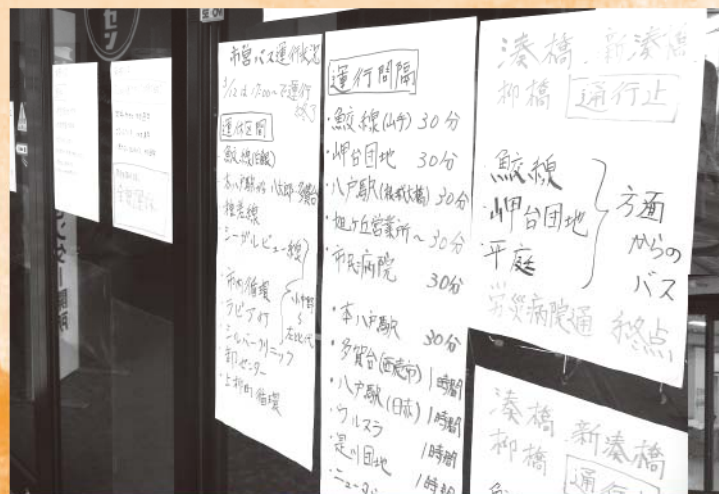 市営バス運行状況
3/12は17:00〜で運行
終了
運休区間
・鮫線(白銀)
・種差線
・シーガルビュー線
・市内循環
・ラピア行
・シルバークリニック
・上柳町循環
小中野
〜
左比代
運行間隔
・鮫線(山手) 30分
・岬台団地 30分
・八戸駅(根城大橋) 30分
・旭ヶ丘営業所〜 30分
・市民病院 30分
・本八戸駅 30分
・多賀台(西売市) 1時間
・八戸駅(日赤) 1時間
・ウルスラ 1時間
・是川団地 1時間
・ニュータ
湊橋 新湊橋
柳橋 通行止
・鮫線
・岬台団地
・平庭
方面
からの
バス
労災病院通 終点
湊橋 新湊橋
柳橋 通行
全面運休